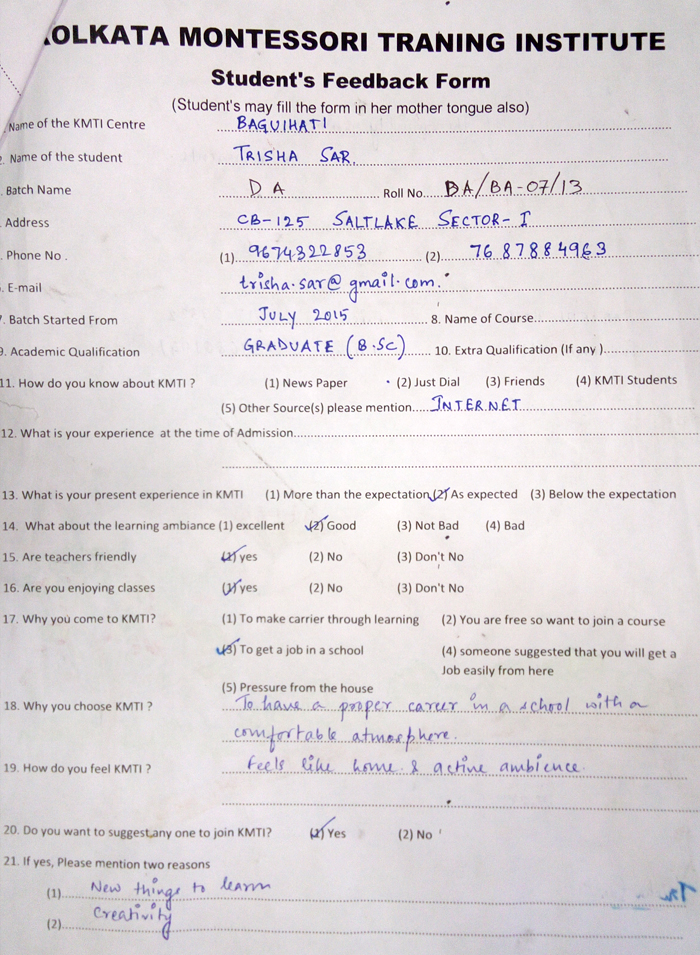 KOLKATA MONTESSORI TRANING INSTITUTE
Student's Feedback Form
(Student's may fill the form in her mother tongue also)
Name of the KMTI Centre BAGUIHATI
Name of the student TRISHA SAR.
Batch Name DA Roll No. DA/BA-07/13
Address CB-125 SALTLAKE SECTOR-I
Phone No. (1) 9674322853 (2) 7687884963
E-mail trisha.sar@gmail.com.
7. Batch Started From JULY 2015 8. Name of Course
9. Academic Qualification GRADUATE (B.SC) 10. Extra Qualification (If any)
11. How do you know about KMTI ? (1) News Paper (2) Just Dial (3) Friends (4) KMTI Students
(5) Other Source(s) please mention INTERNET
12. What is your experience at the time of Admission
13. What is your present experience in KMTI (1) More than the expectation (2) As expected (3) Below the expectation
14. What about the learning ambiance (1) excellent (2) Good (3) Not Bad (4) Bad
15. Are teachers friendly (1) yes (2) No (3) Don't No
16. Are you enjoying classes (1) yes (2) No (3) Don't No
17. Why you come to KMTI? (1) To make carrier through learning (2) You are free so want to join a course
(3) To get a job in a school (4) someone suggested that you will get a
Job easily from here
(5) Pressure from the house
18. Why you choose KMTI ? To have a proper career in a school with a
comfortable atmosphere.
19. How do you feel KMTI ? Feels like home & active ambience.
20. Do you want to suggest any one to join KMTI? (1) Yes (2) No
21. If yes, Please mention two reasons
(1) New things to learn
(2) Creativity